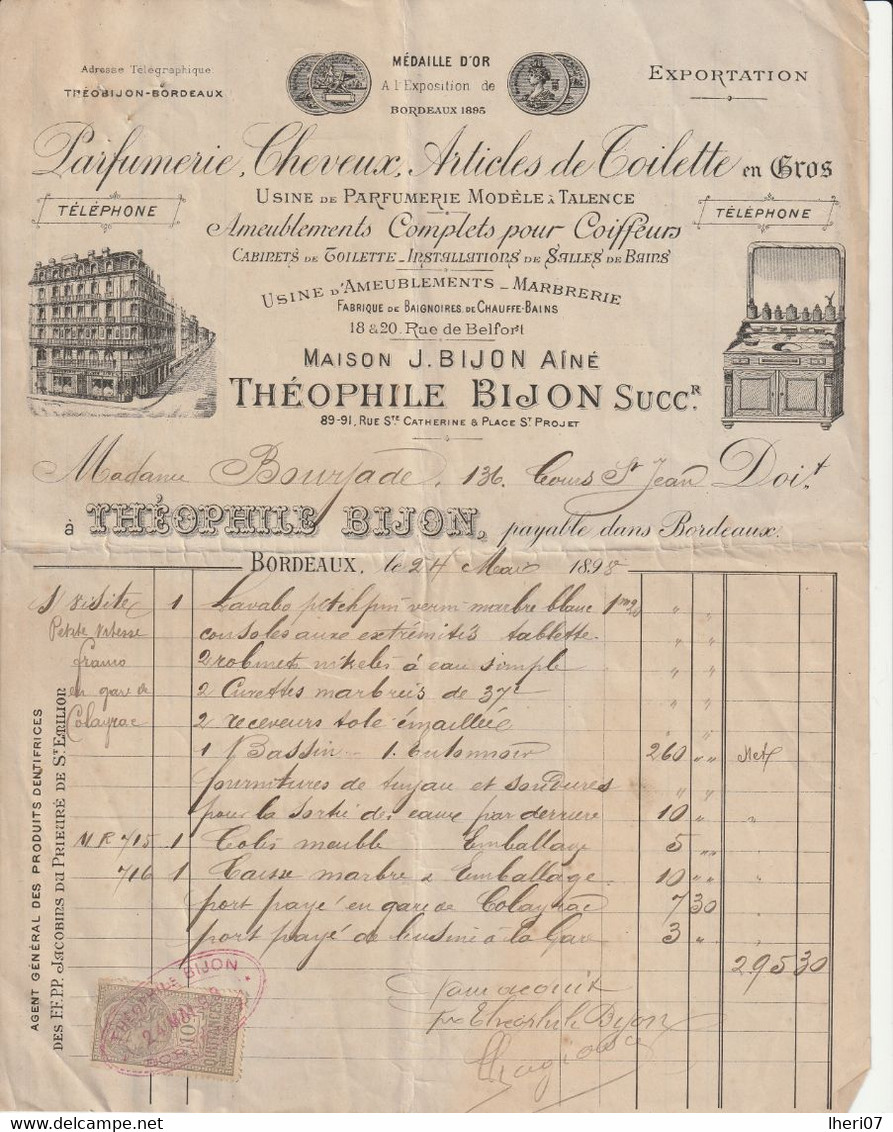 Adresse Télégraphique
THÉOBIJON-BORDEAUX
MÉDAILLE D'OR
A l'Exposition de
BORDEAUX 1895
EXPORTATION
Parfumerie, Cheveux, Articles de Toilette en Gros
USINE DE PARFUMERIE MODÈLE À TALENCE
TÉLÉPHONE
TÉLÉPHONE
Ameublements Complets pour Coiffeurs
CABINETS DE TOILETTE_INSTALLATIONS DE SALLES DE BAINS
USINE D'AMEUBLEMENTS _ MARBRERIE
FABRIQUE DE BAIGNOIRES, DE CHAUFFE-BAINS
18 & 20, Rue de Belfort
MAISON J. BIJON AÎNÉ
THÉOPHILE BIJON SUCCR.
89-91, RUE STE CATHERINE & PLACE ST PROJET
Madame Bourjade, 136, Cours St Jean Doit
à THÉOPHILE BIJON, payable dans Bordeaux.
BORDEAUX, le 24 Mars 1898
S/ visite 1 Lavabo pitchpin verni marbre blanc 1m20 " "
Petite vitesse consoles aux extrémités tablette " "
franco 2 robinets nikelés à eau simple " "
en gare de 2 Cuvettes marbreis de 37c " "
Colayrac 2 receveurs tole émaillée " "
1 Bassin - 1 Entonnoir 260 " " Net
fournitures de tuyau et soudures " "
pour la sortie des eaux par derriere 10 " "
MR 715 1 Colis meuble Emballage 5 " "
716 1 Caisse marbre & Emballage 10 " "
port payé en gare de Colayrac 7 30
port payé de l'usine à la Gare 3 "
295 30
Pour acquit
pr Théophile Bijon
AGENT GÉNÉRAL DES PRODUITS DENTIFRICES
DES FF.PP. JACOBINS DU PRIEURÉ DE ST EMILION
THÉOPHILE BIJON
24 MAR 98
10
QUITTANCES
delcampe.net
lheri07